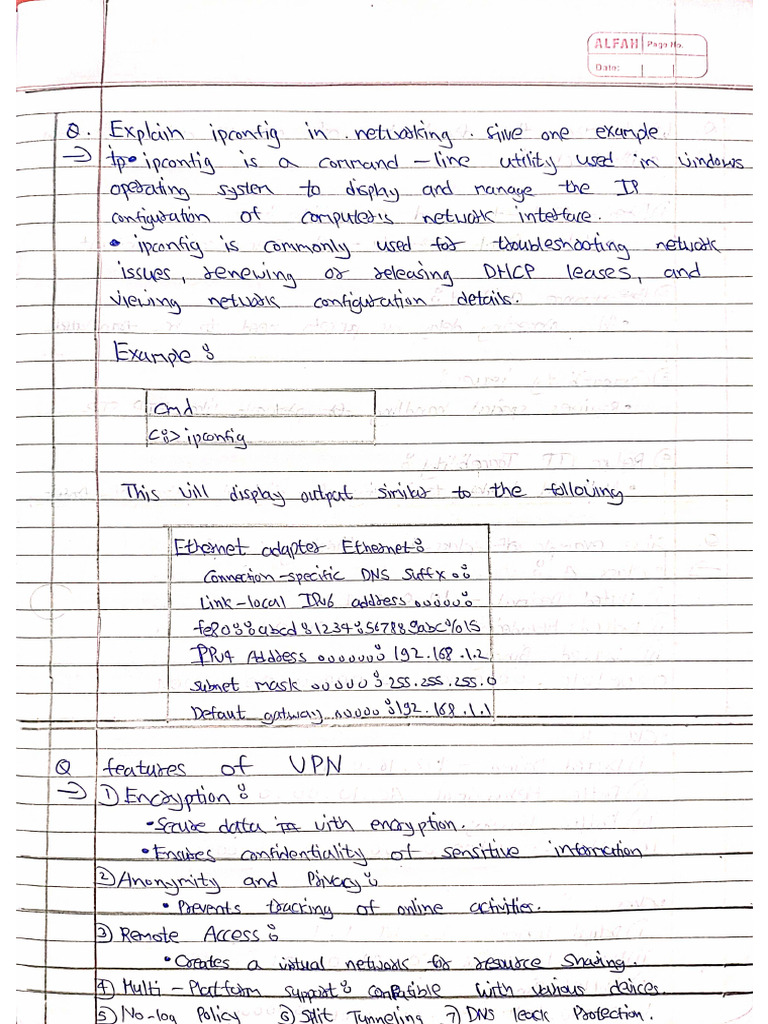 ALFAH Page No.
Date:
Q. Explain ipconfig in networking. Give one example.
→ ipconfig is a command-line utility used in windows
operating system to display and manage the IP
configuration of computer's network interface.
• ipconfig is commonly used for troubleshooting network
issues, renewing or releasing DHCP leases, and
viewing network configuration details.
Example:
cmd
C:> ipconfig
This will display output similar to the following
Ethernet adapter Ethernet:
Connection-specific DNS Suffx . :
Link-local IPv6 address ......:
fe80::abcd:1234:56789abc%15
IPv4 Address .......: 192.168.1.2
subnet mask .....: 255.255.255.0
Defaut gatway .....: 192.168.1.1
Q features of VPN
→ 1) Encryption:
• Secure data with encryption.
• Ensures confidentiality of sensitive information
2) Anonymity and Privacy:
• Prevents tracking of online activities.
3) Remote Access:
• Creates a virtual network for resource sharing
4) Multi-Platform support: compatible with various devices.
5) No-log Policy 6) Split Tunneling 7) DNS leack Protection.